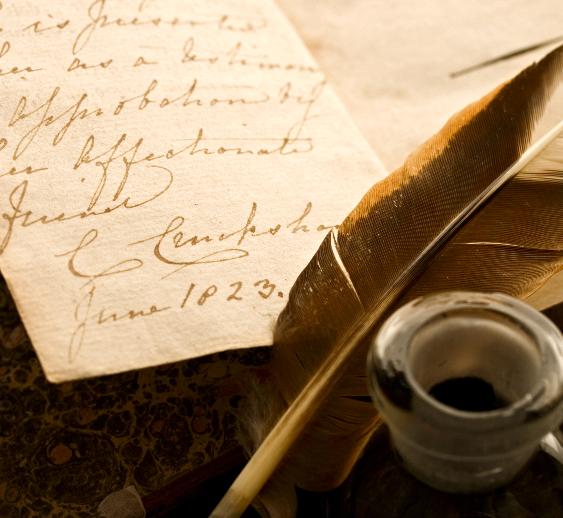 is presented
her as a testimony
approbation by
her affectionate
Friend
C Cruiksha
June 1823.